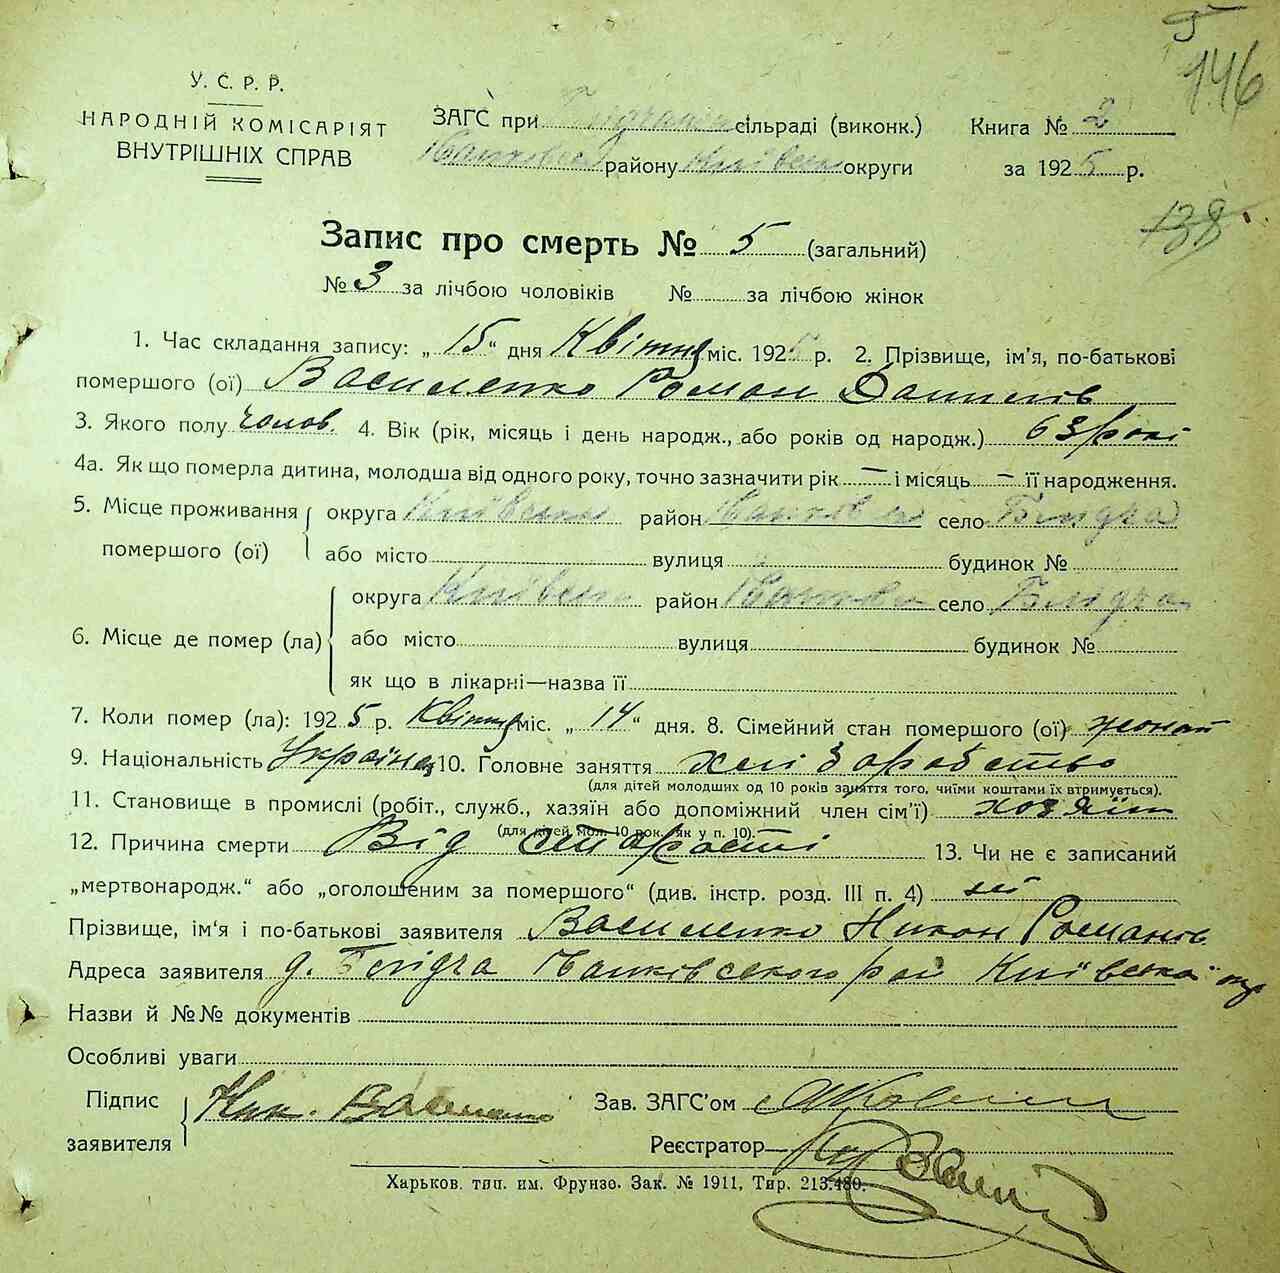 146
У. С. Р. Р.
НАРОДНІЙ КОМІСАРІЯТ
ВНУТРІШНІХ СПРАВ
ЗАГС при сільраді (виконк.)
району Київськ округи
Книга № 2
за 1925 р.
138
Запис про смерть № 5 (загальний)
№ 3 за лічбою чоловіків № за лічбою жінок
1. Час складання запису: „15“ дня Квітня міс. 192 р. 2. Прізвище, ім'я, по-батькові
помершого (ої) Василенко Роман Данилів
3. Якого полу чолов. 4. Вік (рік, місяць і день народж., або років од народж.) 63 рокі
4а. Як що померла дитина, молодша від одного року, точно зазначити рік — і місяць — її народження.
5. Місце проживання округа Київськ район село
помершого (ої) або місто вулиця будинок №
округа Київськ район село
6. Місце де помер (ла) або місто вулиця будинок №
як що в лікарні—назва її
7. Коли помер (ла): 1925 р. Квітня міс. „14“ дня. 8. Сімейний стан помершого (ої) жонат
9. Національність Українец 10. Головне заняття хліборобство
(для дітей молодших од 10 років заняття того, чиїми коштами їх втримується).
11. Становище в промислі (робіт., служб., хазяїн або допоміжний член сім'ї) хозяїн
(для дітей мол. 10 рок. як у п. 10).
12. Причина смерти Від старості 13. Чи не є записаний
„мертвонародж.“ або „оголошеним за помершого“ (див. інстр. розд. III п. 4) ні
Прізвище, ім'я і по-батькові заявителя Василенко Никон Романів
Адреса заявителя Київської
Назви й №№ документів
Особливі уваги
Підпис
заявителя
Ник. Василенко
Зав. ЗАГС'ом
Реєстратор
Харьков. тип. им. Фрунзо. Зак. № 1911, Тир. 213.480.